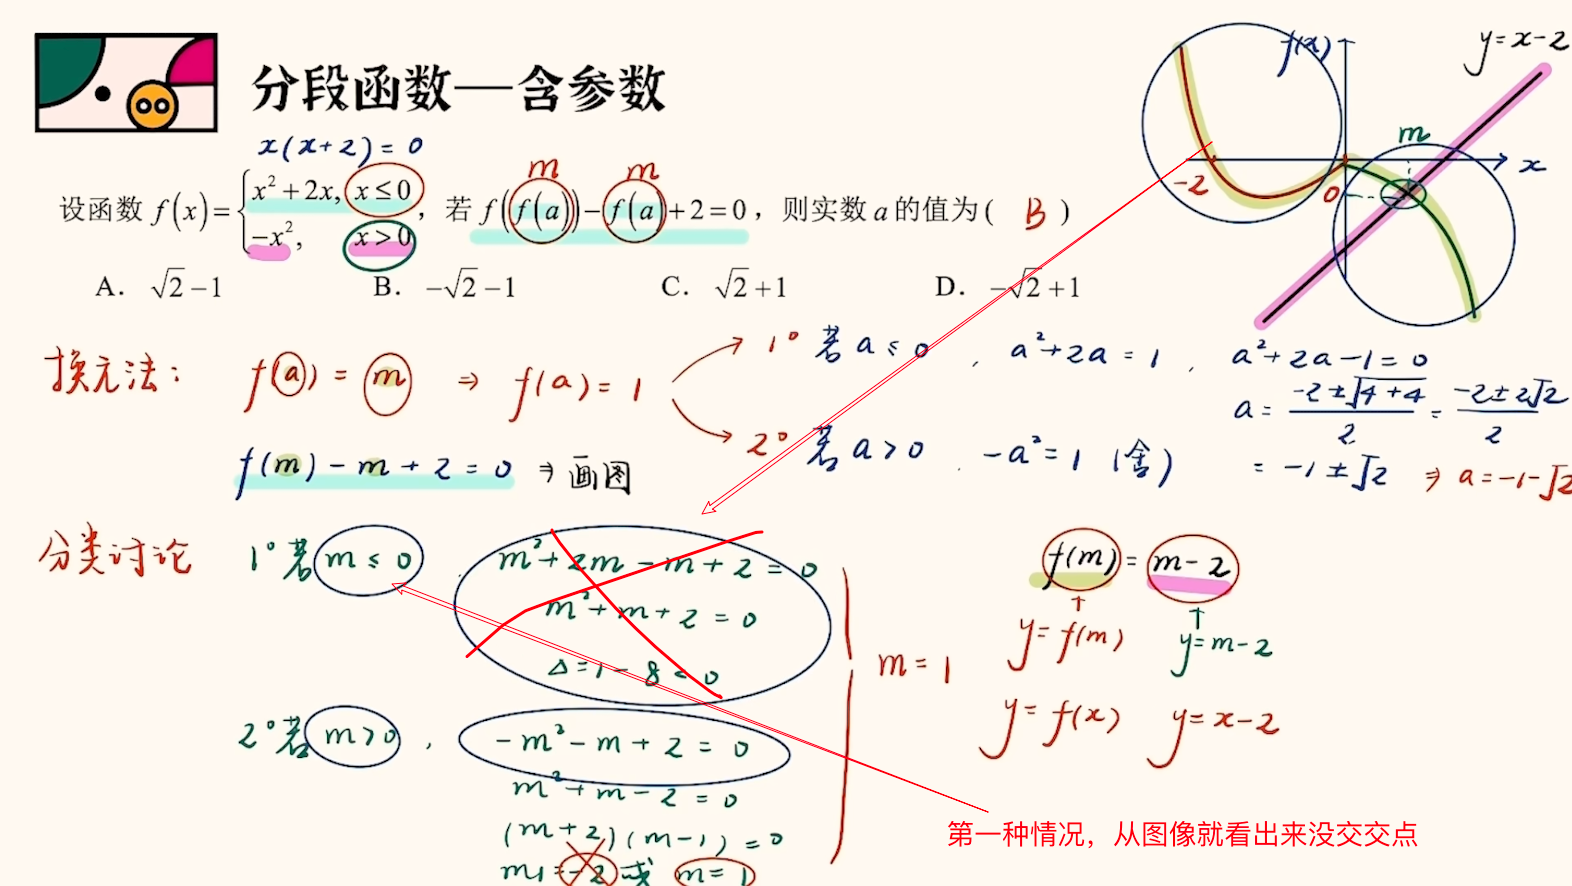 分段函数—含参数
x(x+2)=0
m m
设函数 f(x)={x²+2x, x≤0
-x², x>0 ，若 f(f(a))-f(a)+2=0，则实数 a 的值为( B )
A. √2-1 B. -√2-1 C. √2+1 D. -√2+1
f(x)
y=x-2
m
x
-2
0
换元法： f(a)=m ⇒ f(a)=1
1° 若 a≤0 , a²+2a=1 , a²+2a-1=0
a= (-2±√(4+4))/2 = (-2±2√2)/2
= -1±√2 ⇒ a=-1-√2
2° 若 a>0 , -a²=1 (舍)
f(m)-m+2=0 ⇒画图
分类讨论 1°若 m≤0 , m²+2m-m+2=0
m²+m+2=0
Δ=1-8<0
2°若 m>0 , -m²-m+2=0
m²+m-2=0
(m+2)(m-1)=0
m₁=-2 或 m=1
m=1
f(m)=m-2
↑ ↑
y=f(m) y=m-2
y=f(x) y=x-2
第一种情况，从图像就看出来没交交点